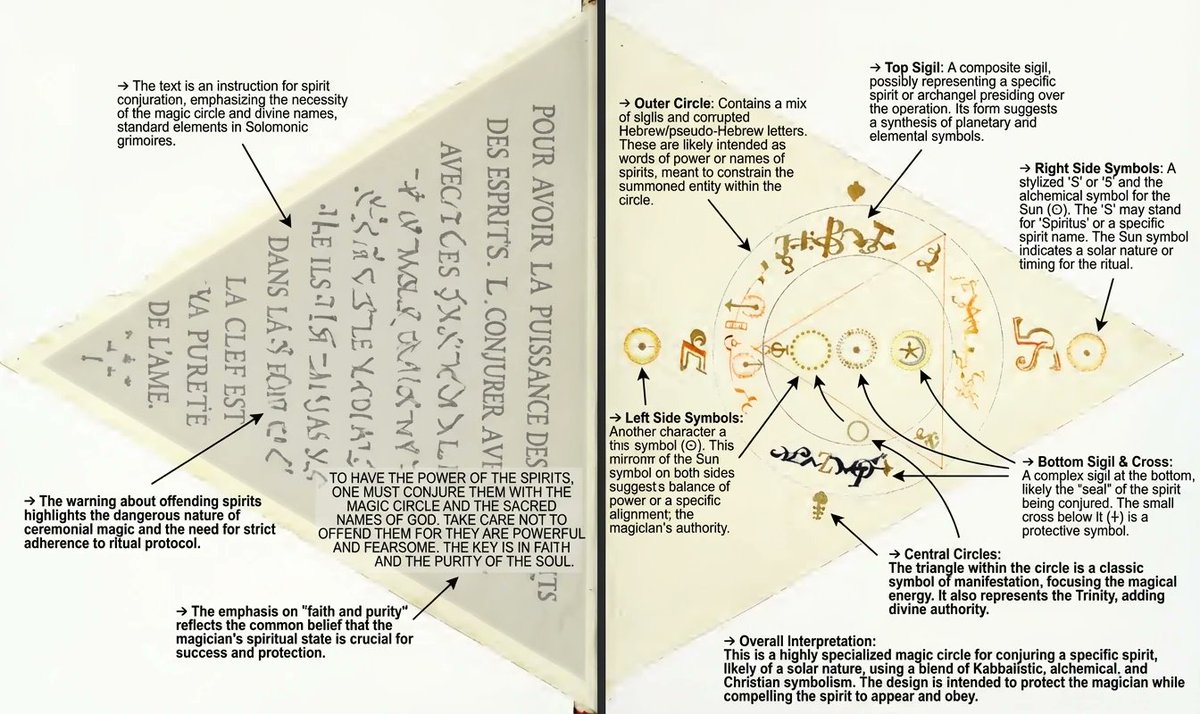 → The text is an instruction for spirit
conjuration, emphasizing the necessity
of the magic circle and divine names,
standard elements in Solomonic
grimoires.
POUR AVOIR LA PUISSANCE DES
DES ESPRITS. L. CONJURER AVE
AVEC
DANS LA
LA CLEF EST
PURETÉ
DE L'ÂME.
TO HAVE THE POWER OF THE SPIRITS,
ONE MUST CONJURE THEM WITH THE
MAGIC CIRCLE AND THE SACRED
NAMES OF GOD. TAKE CARE NOT TO
OFFEND THEM FOR THEY ARE POWERFUL
AND FEARSOME. THE KEY IS IN FAITH
AND THE PURITY OF THE SOUL.
→ The warning about offending spirits
highlights the dangerous nature of
ceremonial magic and the need for strict
adherence to ritual protocol.
→ The emphasis on "faith and purity"
reflects the common belief that the
magician's spiritual state is crucial for
success and protection.
→ Outer Circle: Contains a mix
of slglis and corrupted
Hebrew/pseudo-Hebrew letters.
These are likely intended as
words of power or names of
spirits, meant to constrain the
summoned entity within the
circle.
→ Top Sigil: A composite sigil,
possibly representing a specific
spirit or archangel presiding over
the operation. Its form suggests
a synthesis of planetary and
elemental symbols.
→ Right Side Symbols: A
stylized 'S' or '5' and the
alchemical symbol for the
Sun (⊙). The 'S' may stand
for 'Spiritus' or a specific
spirit name. The Sun symbol
indicates a solar nature or
timing for the ritual.
→ Left Side Symbols:
Another character a
tnis symbol (⊙). This
mirromr of the Sun
symbol on both sides
suggests balance of
power or a specific
alignment; the
magician's authority.
→ Bottom Sigil & Cross:
A complex sigil at the bottom,
likely the "seal" of the spirit
being conjured. The small
cross below It (+) is a
protective symbol.
→ Central Circles:
The triangle within the circle is a classic
symbol of manifestation, focusing the magical
energy. It also represents the Trinity, adding
divine authority.
→ Overall Interpretation:
This is a highly specialized magic circle for conjuring a specific spirit,
likely of a solar nature, using a blend of Kabbalistic, alchemical. and
Christian symbolism. The design is intended to protect the magician while
compelling the spirit to appear and obey.